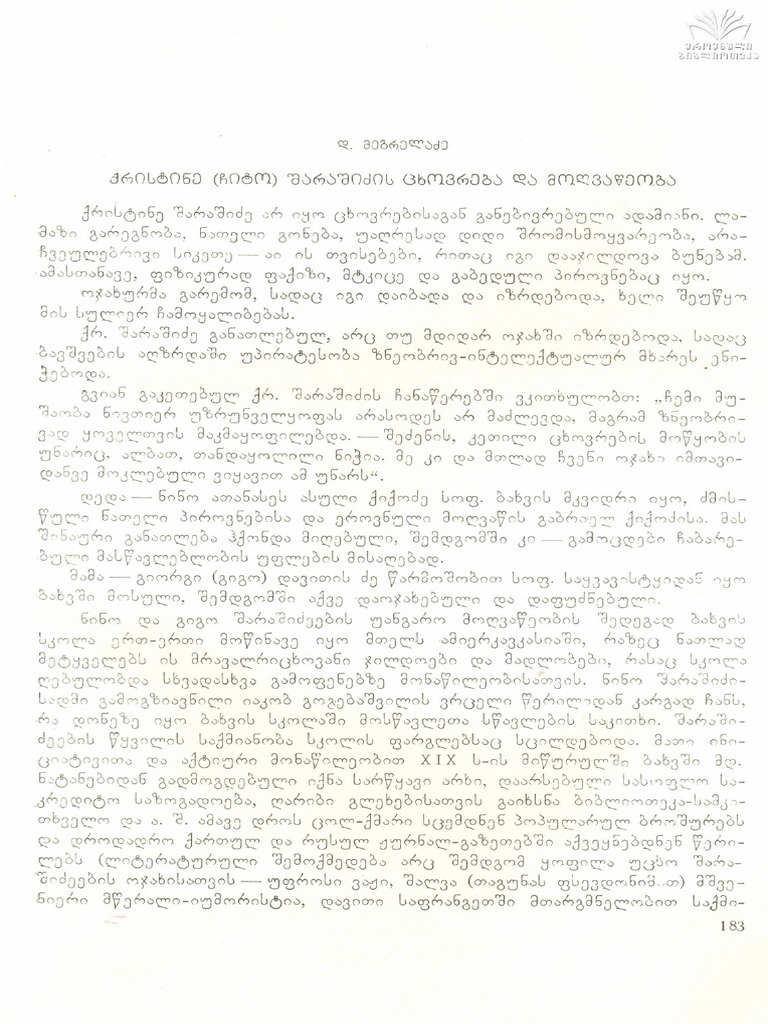 ეროვნული
ბიბლიოთეკა
დ. მეგრელაძე
ქრისტინე (ჩიტო) შარაშიძის ცხოვრება და მოღვაწეობა
ქრისტინე შარაშიძე არ იყო ცხოვრებისაგან განებივრებული ადამიანი. ლა-
მაზი გარეგნობა, ნათელი გონება, უაღრესად დიდი შრომისმოყვარეობა, არა-
ჩვეულებრივი სიკეთე — აი ის თვისებები, რითაც იგი დააჯილდოვა ბუნებამ.
ამასთანავე, ფიზიკურად ფაქიზი, მტკიცე და გაბედული პიროვნებაც იყო.
ოჯახურმა გარემომ, სადაც იგი დაიბადა და იზრდებოდა, ხელი შეუწყო
მის სულიერ ჩამოყალიბებას.
ქრ. შარაშიძე განათლებულ, არც თუ მდიდარ ოჯახში იზრდებოდა, სადაც
ბავშვების აღზრდაში უპირატესობა ზნეობრივ-ინტელექტუალურ მხარეს ენი-
ჭებოდა.
გვიან გაკეთებულ ქრ. შარაშიძის ჩანაწერებში ვკითხულობთ: „ჩემი მუ-
შაობა ნივთიერ უზრუნველყოფას არასოდეს არ მაძლევდა, მაგრამ ზნეობრი-
ვად ყოველთვის მაკმაყოფილებდა. — შეძენის, კეთილი ცხოვრების მოწყობის
უნარიც, ალბათ, თანდაყოლილი ნიჭია. მე კი და მთლად ჩვენი ოჯახი იმთავი-
დანვე მოკლებული ვიყავით ამ უნარს“.
დედა — ნინო ათანასეს ასული ქიქოძე სოფ. ბახვის მკვიდრი იყო, ძმის-
წული ნათელი პიროვნებისა და ეროვნული მოღვაწის გაბრიელ ქიქოძისა. მას
შინაური განათლება ჰქონდა მიღებული, შემდგომში კი — გამოცდები ჩაბარე-
ბული მასწავლებლობის უფლების მისაღებად.
მამა — გიორგი (გიგო) დავითის ძე წარმოშობით სოფ. საყვავისტყიდან იყო
ბახვში მოსული, შემდგომში აქვე დაოჯახებული და დაფუძნებული.
ნინო და გიგო შარაშიძეების უანგარო მოღვაწეობის შედეგად ბახვის
სკოლა ერთ-ერთი მოწინავე იყო მთელს ამიერკავკასიაში, რაზეც ნათლად
მეტყველებს ის მრავალრიცხოვანი ჯილდოები და მადლობები, რასაც სკოლა
ღებულობდა სხვადასხვა გამოფენებზე მონაწილეობისათვის. ნინო შარაშიძი-
სადმი გამოგზავნილი იაკობ გოგებაშვილის ვრცელი წერილიდან კარგად ჩანს,
რა დონეზე იყო ბახვის სკოლაში მოსწავლეთა სწავლების საკითხი. შარაში-
ძეების წყვილის საქმიანობა სკოლის ფარგლებსაც სცილდებოდა. მათი ინი-
ციატივითა და აქტიური მონაწილეობით XIX ს-ის მიწურულში ბახვში მდ.
ნატანებიდან გადმოგდებული იქნა სარწყავი არხი, დაარსებული სასოფლო სა-
კრედიტო საზოგადოება, ღარიბი გლეხებისათვის გაიხსნა ბიბლიოთეკა-სამკი-
თხველო და ა. შ. ამავე დროს ცოლ-ქმარი სცემდნენ პოპულარულ ბროშურებს
და დროდადრო ქართულ და რუსულ ჟურნალ-გაზეთებში აქვეყნებდნენ წერი-
ლებს (ლიტერატურული შემოქმედება არც შემდგომ ყოფილა უცხო შარა-
შიძეების ოჯახისათვის — უფროსი ვაჟი, შალვა (თაგუნას ფსევდონიმით) მშვე-
ნიერი მწერალი-იუმორისტია, დავითი საფრანგეთში მთარგმნელობით საქმი-
183